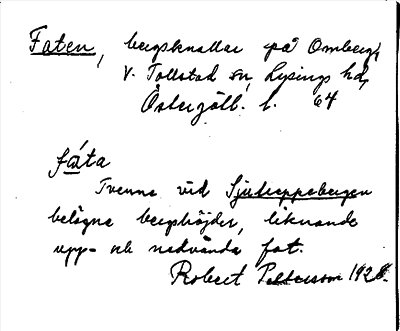 Faten, bergsknallar på Omberg,
V. Tollstad sn, Lysings hd,
Östergötl. l. 64
fàta
Tvenne vid Sjutroppebergen
belägna bergshöjder, liknande
upp- och nedvända fat.
Robert Pettersson 1928.